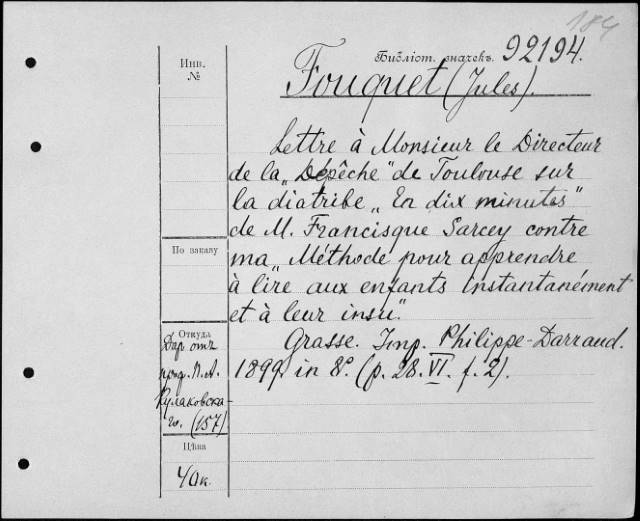 184
Библіот. значекъ. 92194.
Инв.
№
Fouquet (Jules).
Lettre à Monsieur le Directeur
de la „Dépêche" de Toulouse sur
la diatribe „En dix minutes"
de M. Francisque Sarcey contre
ma „Méthode pour apprendre
à lire aux enfants instantanément
et à leur insu".
Grasse. Imp. Philippe-Darraud.
1899. in 8º. (p. 28. VI. f. 2).
По заказу
Откуда
Даръ отъ
проф. П. А.
Кулаковска-
го. (157)
Цѣна
40к.